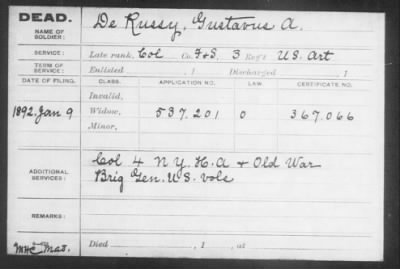 DEAD.
NAME OF SOLDIER:
De Russy, Gustavus A.
SERVICE:
Late rank, Col Co. F&S, 3 Reg't U.S. Art
TERM OF SERVICE:
Enlisted , 1 Discharged , 1
DATE OF FILING. CLASS. APPLICATION NO. LAW. CERTIFICATE NO.
Invalid,
1892, Jan 9 Widow, 537.201 0 367.066
Minor,
ADDITIONAL SERVICES:
Col 4 N.Y.H.A & Old War
Brig Gen. U.S. vols
REMARKS:
Died , 1 , at